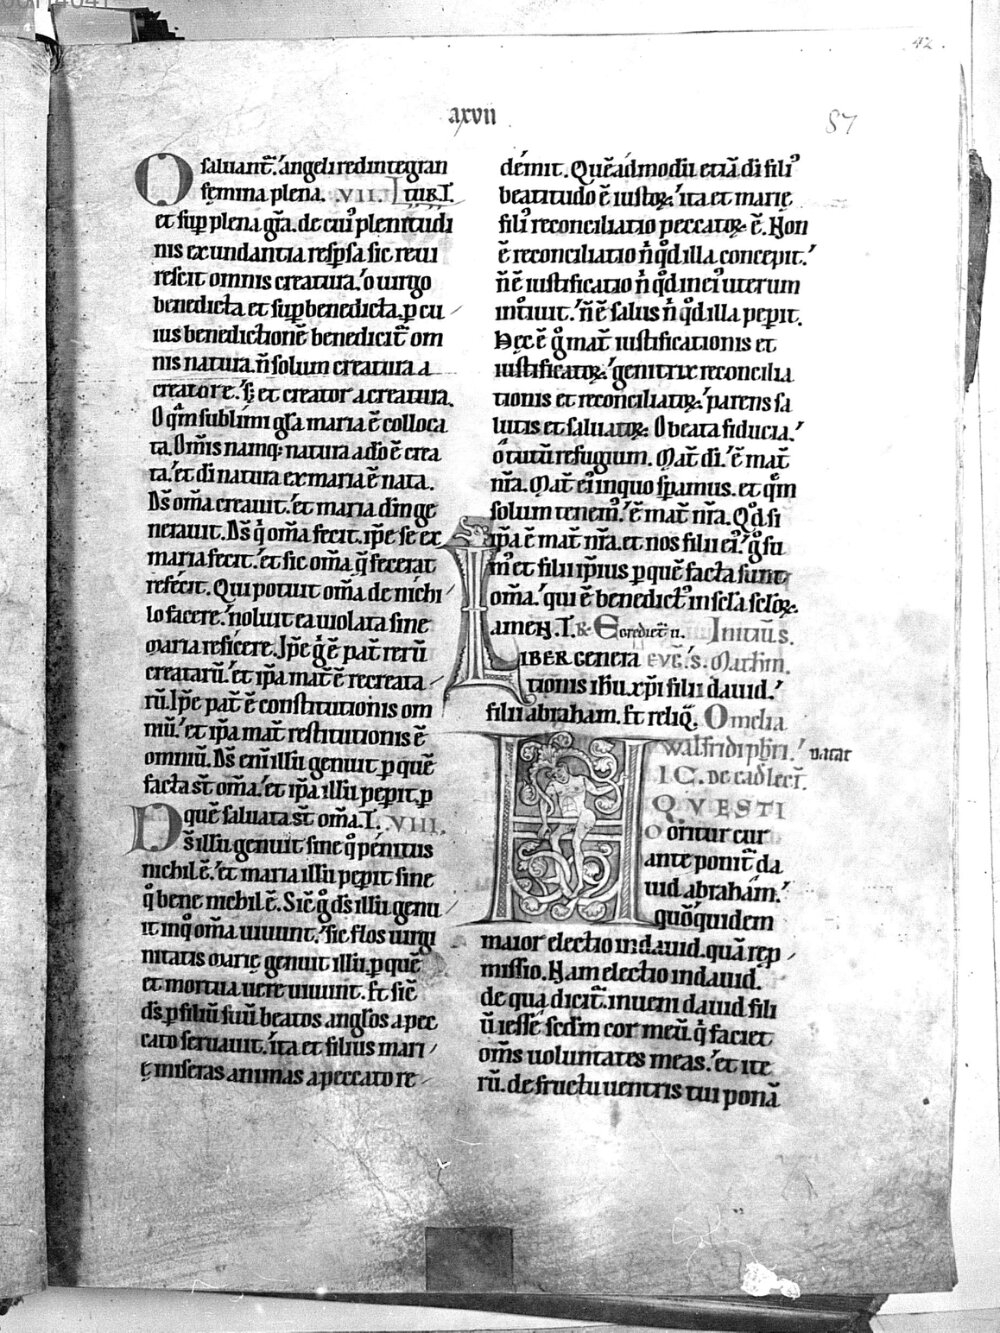 axvii
87
42.
saluant᷑. angeli redintegran
O femina plena. .VII. L
et sup plena gr̃a. de cui᷒ plenitudi
nis exundantia respsa sic reui
rescit omnis creatura. o uirgo
benedicta et sup benedicta. p cu
ius benedictionē benedicit᷑ om
nis natura. ñ solum creatura a
creatore. sꝫ et creator a creatura.
O qm̃ sublimi gr̃a maria ē colloca
ta. Om̃is namq; natura a dõ ē crea
ta. et di natura ex maria ē nata.
Ds̃ om̃a creauit. et maria dm̃ ge
nerauit. Ds̃ q̇ om̃a fecit. ip̃e se ex
maria fecit. et sic om̃a q̃ fecerat
refecit. Qui potuit om̃a de nichi
lo facere. noluit ea uiolata sine
maria reficere. Ip̃e g̊ ē pat᷑ rerū
creatarū. et ip̃a mat᷑ ē recreata
rū. Ip̃e pat᷑ ē constitutionis om
niū. et ip̃a mat᷑ restitutionis ē
omniū. Ds̃ eni illū genuit p quē
facta st̃ om̃a. et ip̃a illū pepit. p
quē saluata st̃ om̃a. T. .VIII.
Ds̃ illū genuit sine q̊ penitus
nichil ē. et maria illū pepit sine
q̊ bene nichil ē. Sic g̊ ds̃ illū genu
it in q̊ om̃a uiuunt. sic flos uirgi
nitatis marie genuit illū. p quē
et mortua uere uiuunt. Et sic
ds̃ p filiū suū beatos angl̃os a pec
cato seruauit. ita et filius mari
ę miseras animas a peccato re
demit. Quēadmodū etiā di fili᷒
beatitudo ē iustoꝝ. ita et marie
fili᷒ reconciliatio peccatoꝝ ē. Non
ē reconciliatio ñ qd̃ illa concepit.
ñ ē iustificatio ñ qd̃ in ei᷒ uterum
intiuit. ñ ē salus ñ qd̃ illa pepit.
Hec ē g̊ mat᷑ iustificationis et
iustificatoꝝ. genitrix reconcilia
tionis et reconciliatoꝝ. parens sa
lutis et saluatoꝝ. O beata fiducia.
o tutū refugium. Mat᷑ di. ē mat᷑
nr̃a. Mat᷑ ei᷒ in quo spamus. et qm̃
solum tenem᷒. ē mat᷑ nr̃a. Qd̃ si
ip̃a ē mat᷑ nr̃a. et nos filii ei᷒. g̊ su
m᷒ et filii ipius p quē facta sunt
om̃a. qui ē benedict᷒ in scl̃a scl̃oꝝ.
amen. T. Initiū s.
LIBER genera euḡ. s. Mathm̃.
tionis ihũ xp̃i filii dauid.
filii abraham. Et reliq̃. Omelia
walfridi pb̃ri. uacat
I C. de ead̃ lect̃.
QVESTI
o oritur cur
ante ponit᷑ da
uid abraham.
quō quidem
maior electio in dauid. quā rep
missio. Nam electio in dauid.
de qua dicit᷑. inueni dauid fili
ū iesse scdm̃ cor meū. q̇ faciet
om̃s uoluntates meas. et ite
rū. de fructu uentris tui ponā